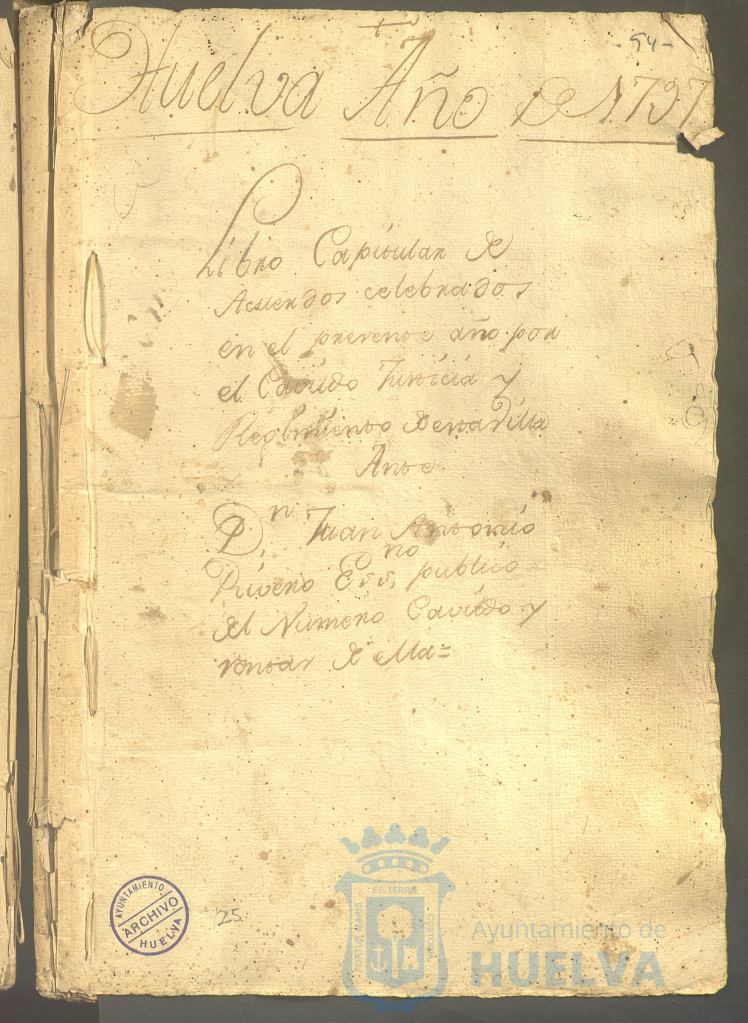 - 94 -
Huelva Año de 1797
Libro Capitular de
Acuerdos celebrados
en el presente año por
el Cavildo Justicia y
Regimiento de esta Villa
Ante
Dn. Juan Antonio
Rivero Essno. publico
del Numero Cavildo y
rentas de ella=
AYUNTAMIENTO
ARCHIVO
HUELVA
25
Ayuntamiento de
HUELVA